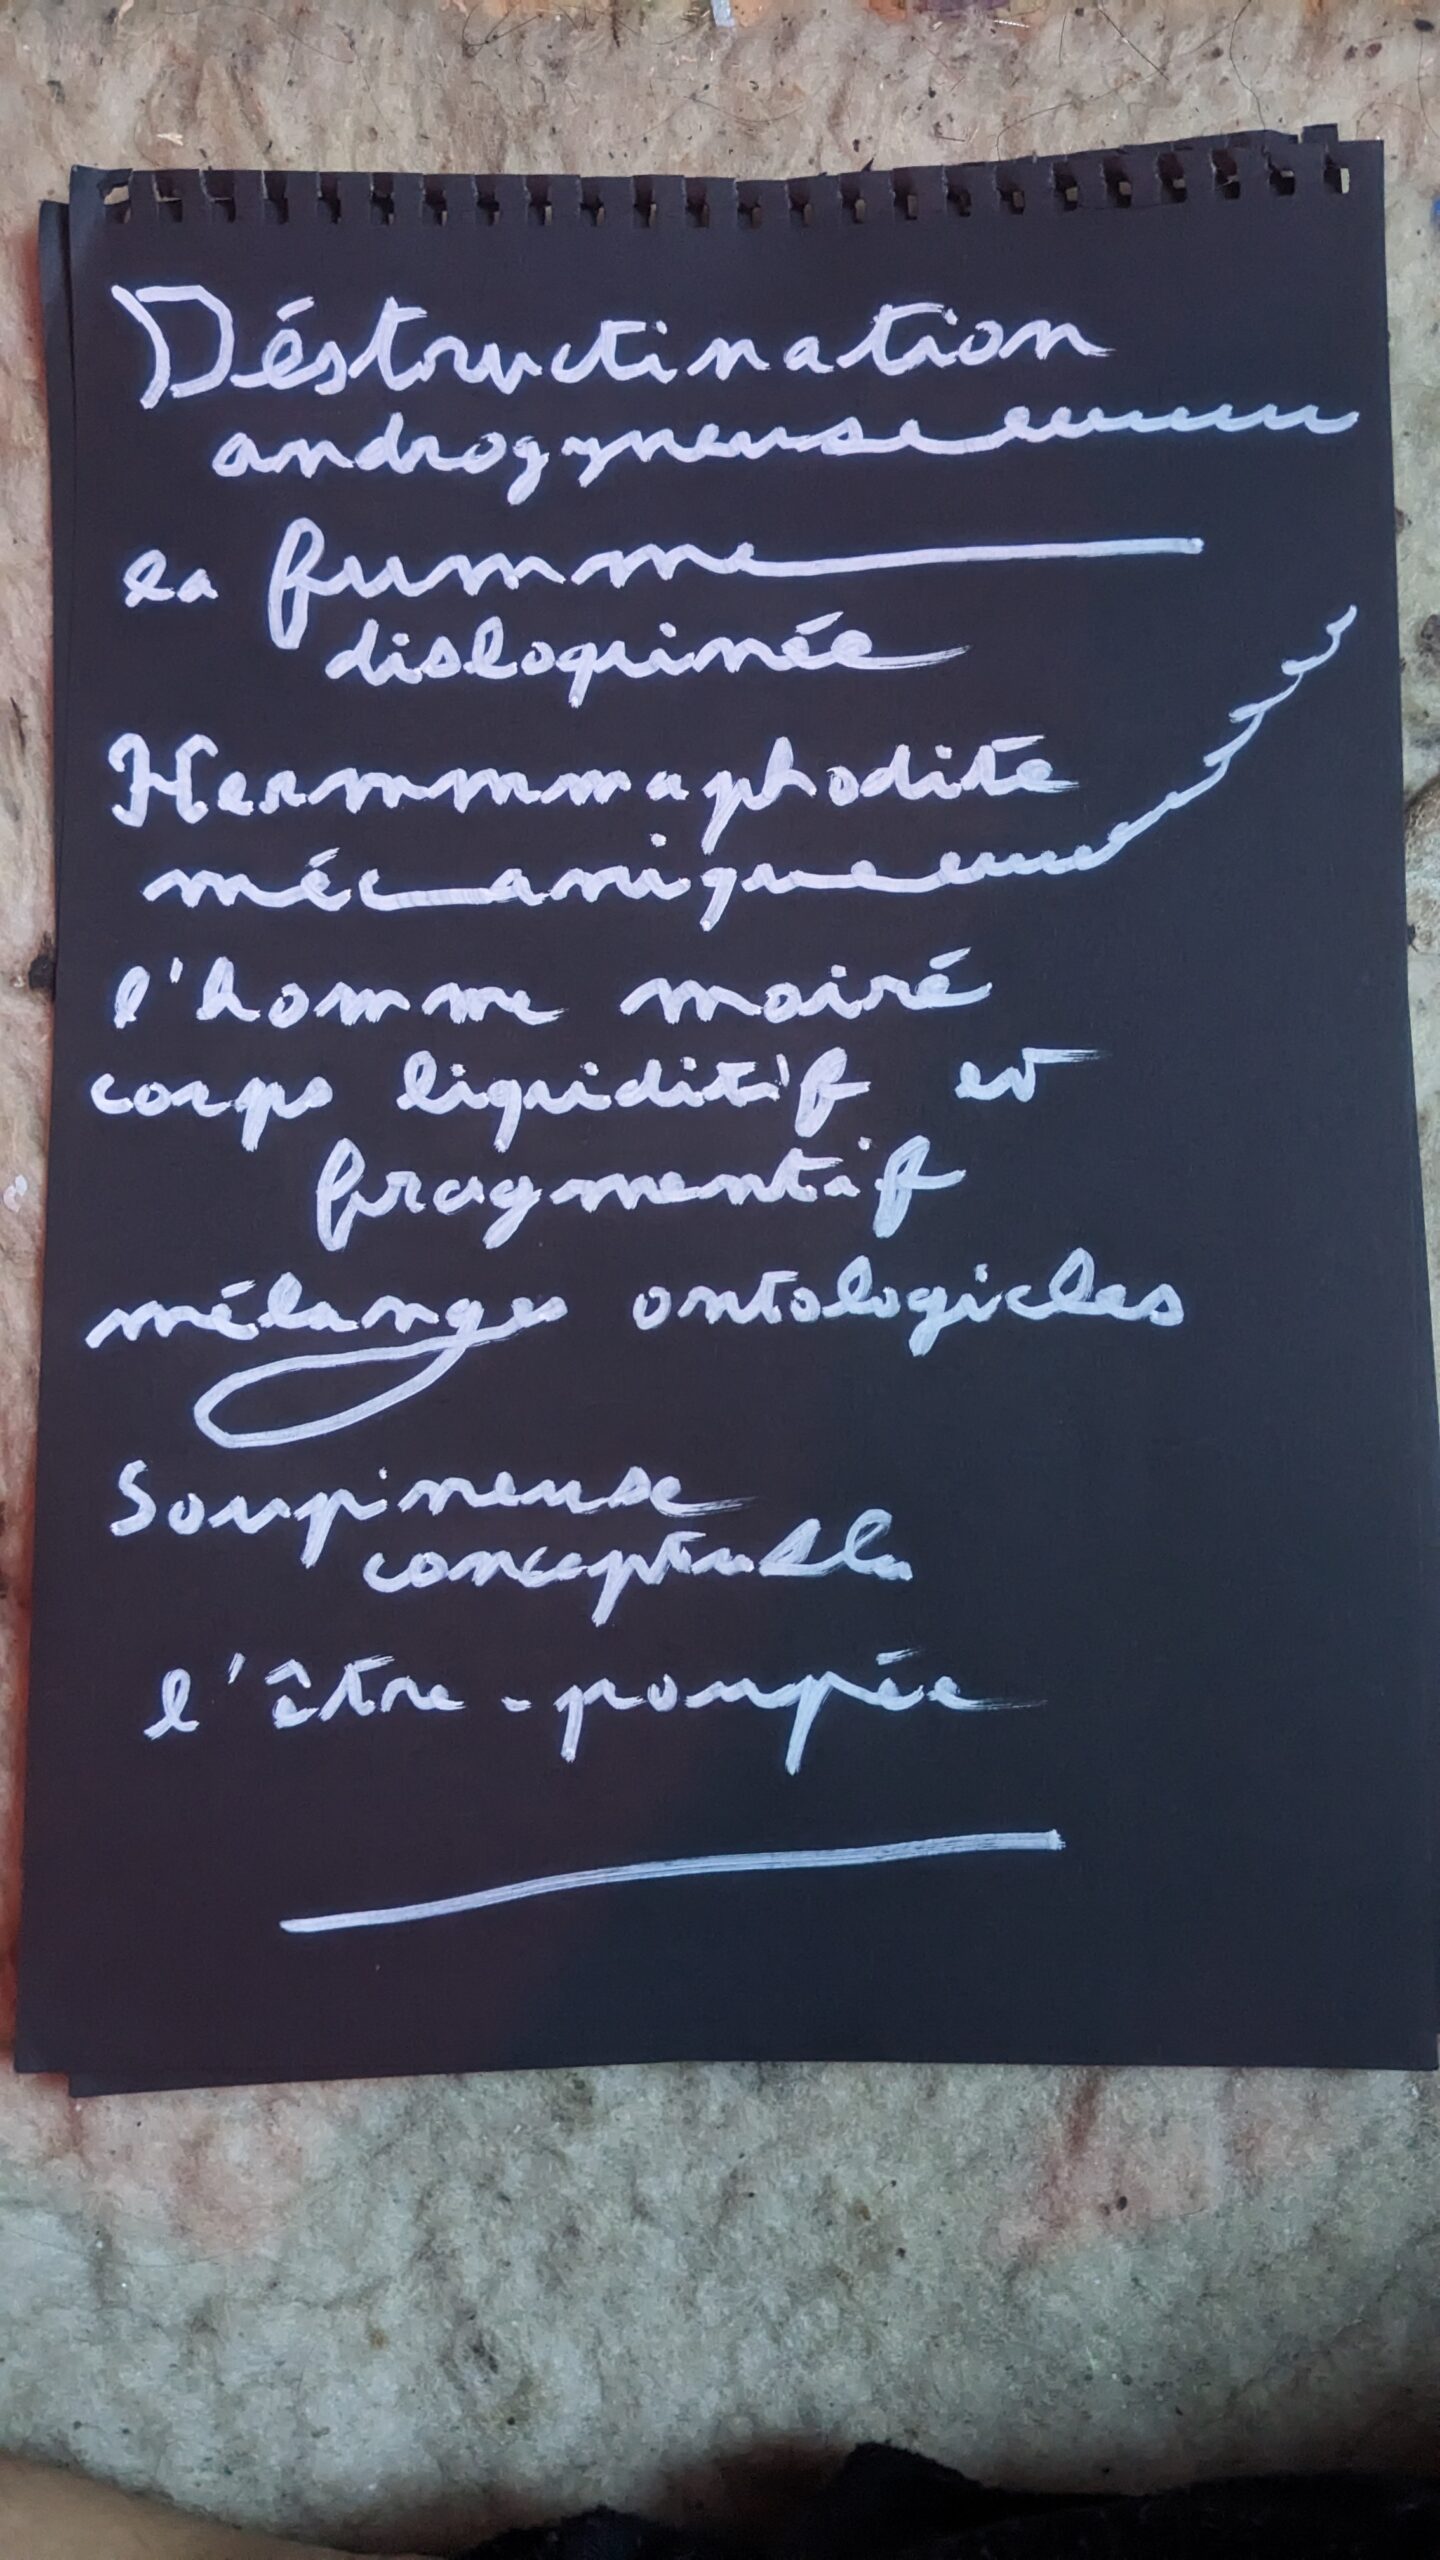 Déstructination
androgyneuse
la fumme
disloquinée
Hermmmaphodite
mécanique
l'homme moiré
corps liquiditif et
fragmentif
mélanges ontologicles
Soupineuse
l'être-poupée